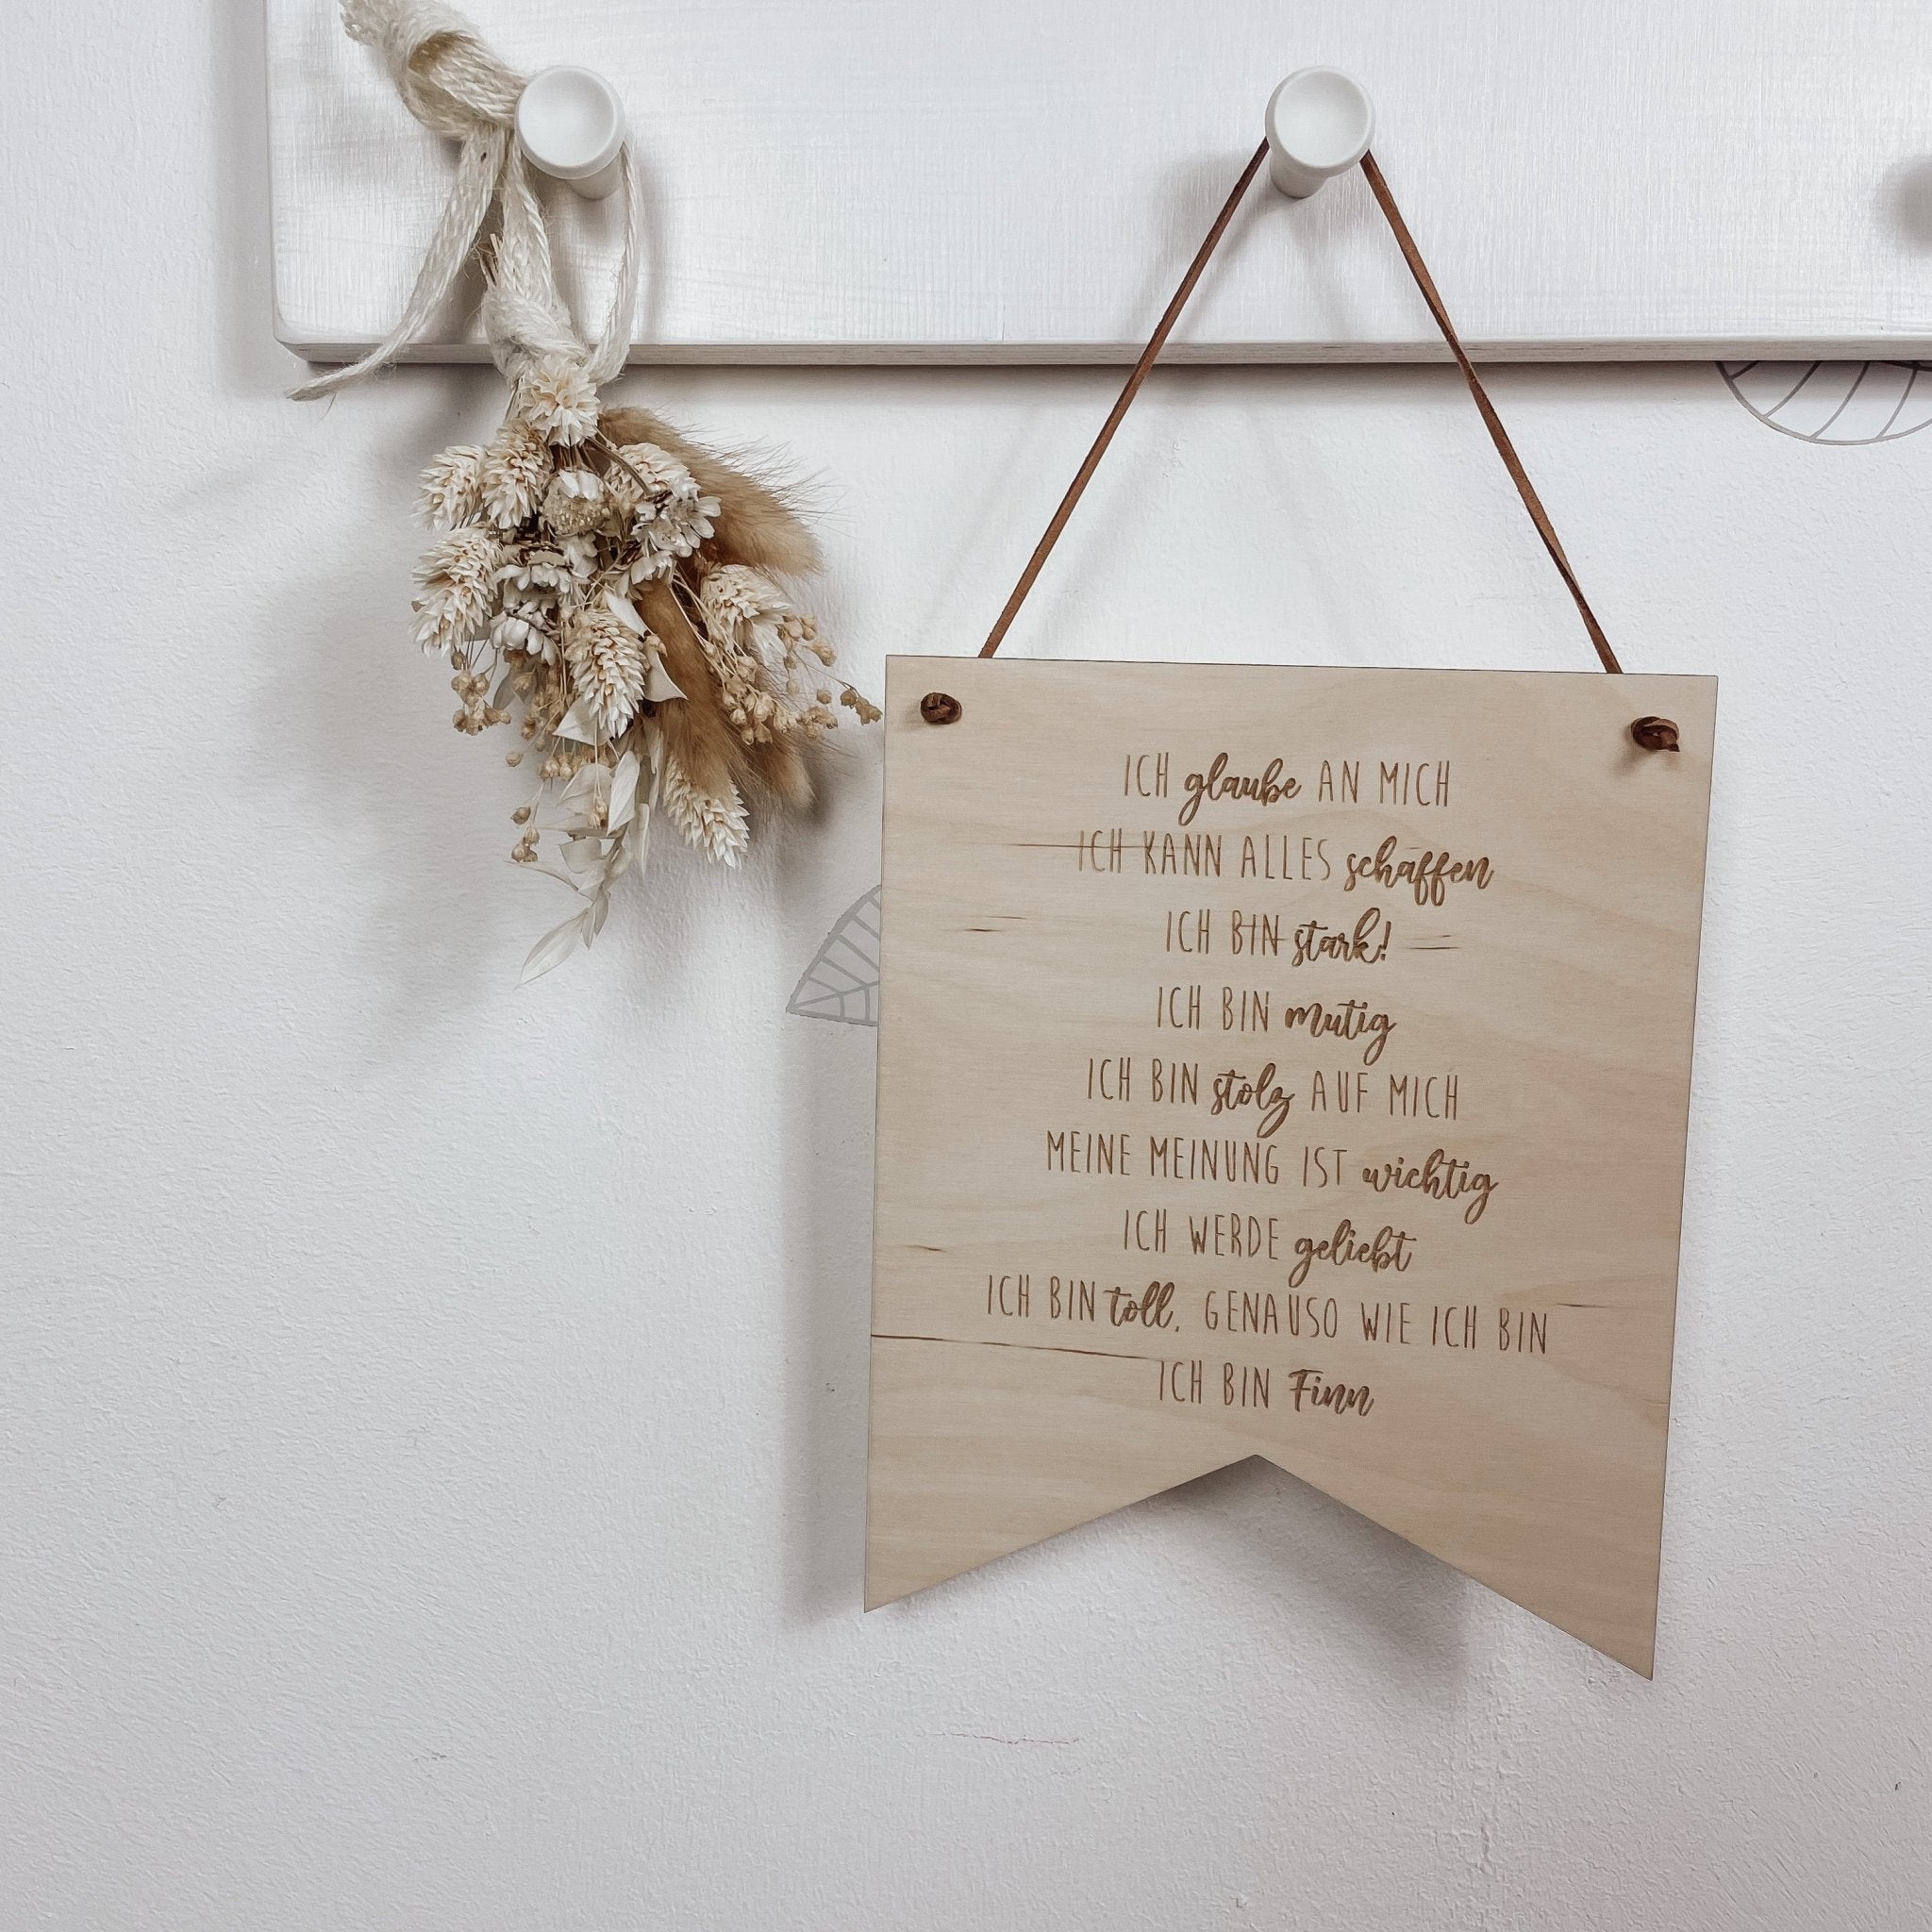 ICH glaube AN MICH
ICH KANN ALLES schaffen
ICH BIN stark!
ICH BIN mutig
ICH BIN stolz AUF MICH
MEINE MEINUNG IST wichtig
ICH WERDE geliebt
ICH BIN toll, GENAUSO WIE ICH BIN
ICH BIN Finn